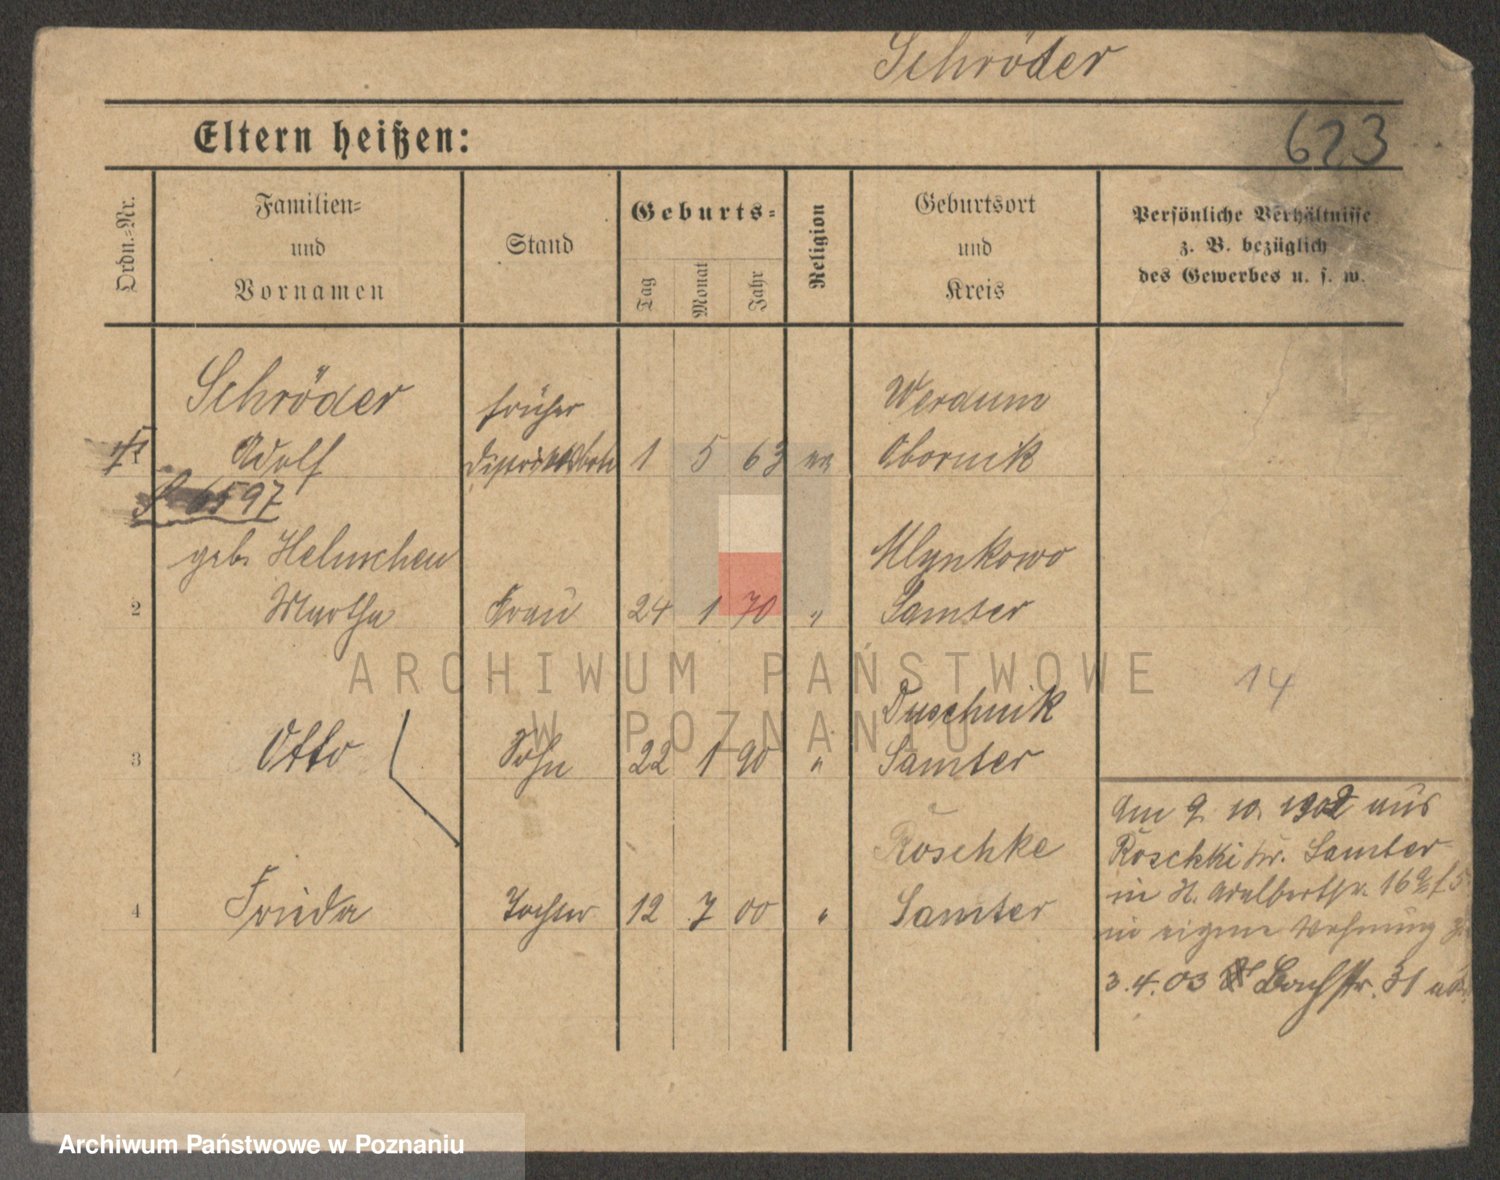 Schröder
Eltern heißen:
623
Ordn.=Nr.
Familien=
und
Vornamen
Stand
Geburts=
Tag
Monat
Jahr
Religion
Geburtsort
und
Kreis
Persönliche Verhältnisse
z. B. bezüglich
des Gewerbes u. s. w.
Schröder früher Werdum
1 Adolf 1 5 63 Obornik
6597
geb. Helmchen Mlynkowo
2 Martha Frau 24 1 70 " Samter
14
Duschnik
3 Otto Sohn 22 1 90 " Samter
Röschke
4 Frieda Tochter 12 7 00 " Samter
Am 9. 10. 1902 aus
Röschki Kr. Samter
in H. Adalbertstr. 16
in eigene Wohnung
3.4.03 Bachstr. 31
ARCHIWUM PAŃSTWOWE
W POZNANIU
Archiwum Państwowe w Poznaniu